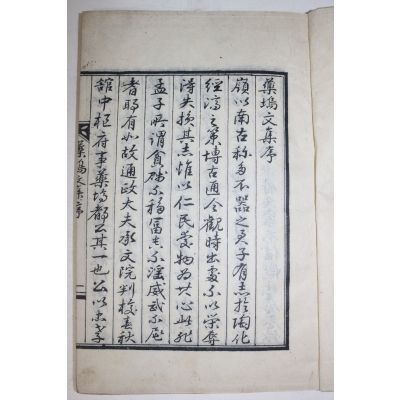 藥塢文集序
嶺以南古称多不器之君子有志於陶化
經濟之策博古通今觀時出處不以榮辱
得失損其志惟以仁民愛物為其心此
孟子所謂貧賤不移富貴不淫威武不屈
者耶有如故通政大夫承文院判校春秋
館中枢府事藥塢鄭公其一也公以忠孝
藥塢文集序